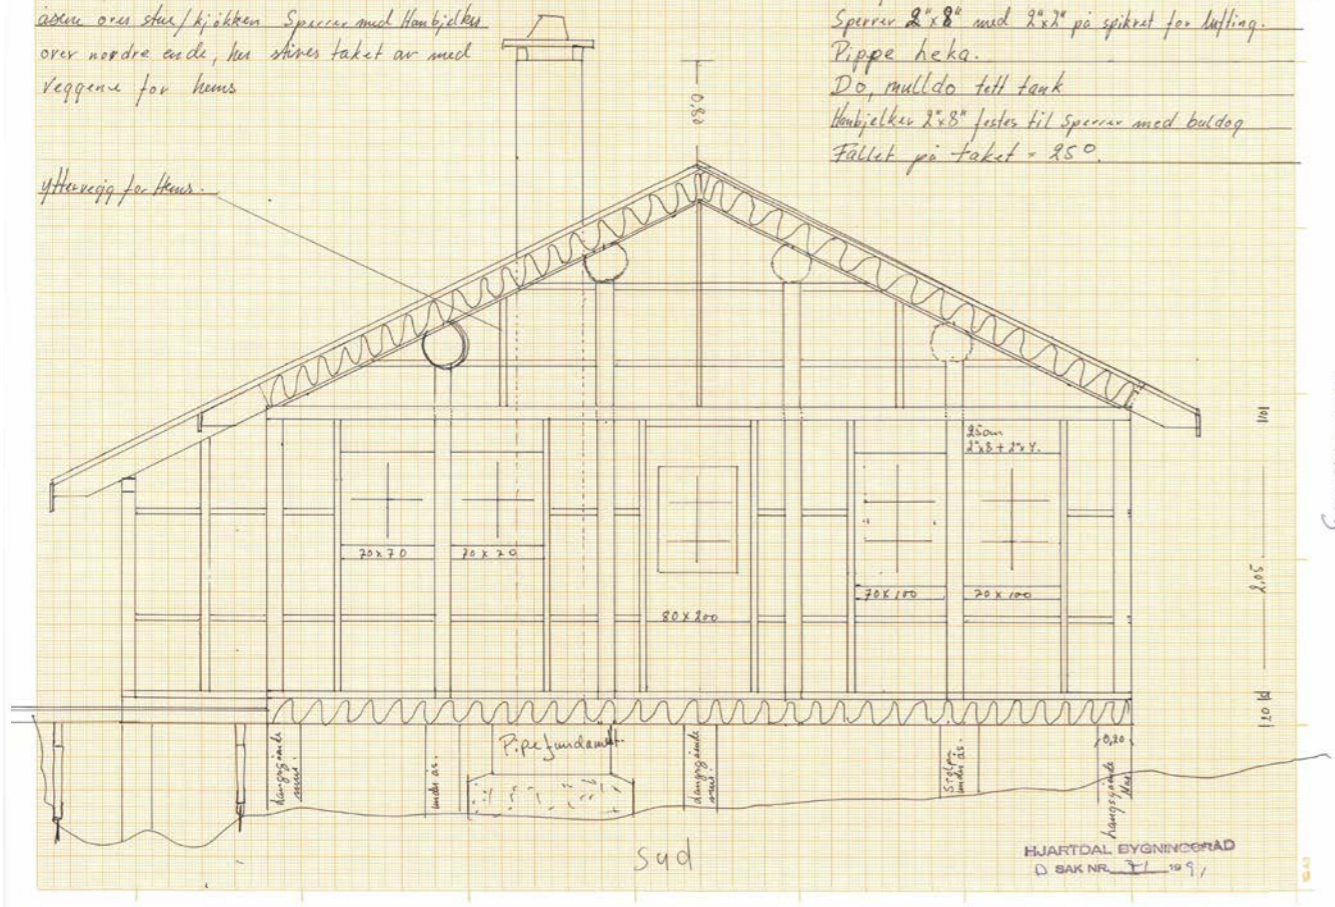 åsene over stue/kjøkken Sperrer med Hanbjelker
over nordre ende, her stives taket av med
veggene for hems
Sperrer 2"x8" med 2"x2" på spikret for lufting.
Pippe heka.
Do, mulldo tett tank
Hanbjelker 2"x8" festes til Sperrer med buldog
Fallet på taket = 25°.
0,80
yttervegg for Hems.
25cm
2"x8+2"x4.
70x70
70x70
70x100
70x100
80x200
2,05
Pipefundament
langsgående
mur.
under ås.
langsgående
mur.
Stolper
under ås.
0,20
langsgående
Mur.
Syd
HJARTDAL BYGNINGSRÅD
D SAK NR. 71 1991